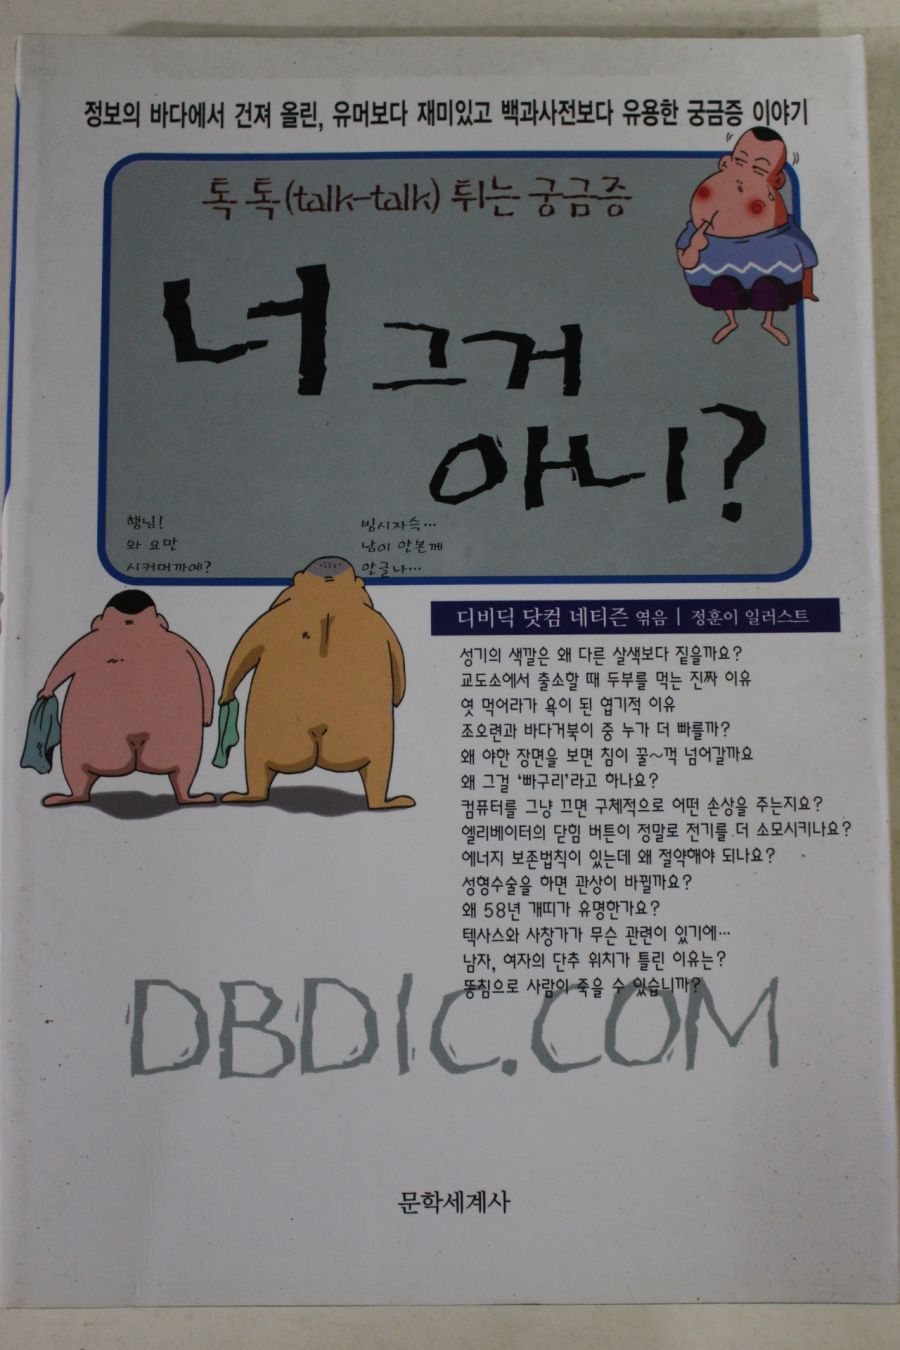 정보의 바다에서 건져 올린, 유머보다 재미있고 백과사전보다 유용한 궁금증 이야기
톡 톡 (talk-talk) 튀는 궁금증
너 그거
아니?
행님!
와 요만
시커머까예?
빙시자슥…
남이 안본께
안글나…
디비딕 닷컴 네티즌 엮음 | 정훈이 일러스트
성기의 색깔은 왜 다른 살색보다 짙을까요?
교도소에서 출소할 때 두부를 먹는 진짜 이유
엿 먹어라가 욕이 된 엽기적 이유
조오련과 바다거북이 중 누가 더 빠를까?
왜 야한 장면을 보면 침이 꿀~꺽 넘어갈까요
왜 그걸 '빠구리'라고 하나요?
컴퓨터를 그냥 끄면 구체적으로 어떤 손상을 주는지요?
엘리베이터의 닫힘 버튼이 정말로 전기를 더 소모시키나요?
에너지 보존법칙이 있는데 왜 절약해야 되나요?
성형수술을 하면 관상이 바뀔까요?
왜 58년 개띠가 유명한가요?
텍사스와 사창가가 무슨 관련이 있기에…
남자, 여자의 단추 위치가 틀린 이유는?
똥침으로 사람이 죽을 수 있습니까?
DBDIC.COM
문학세계사